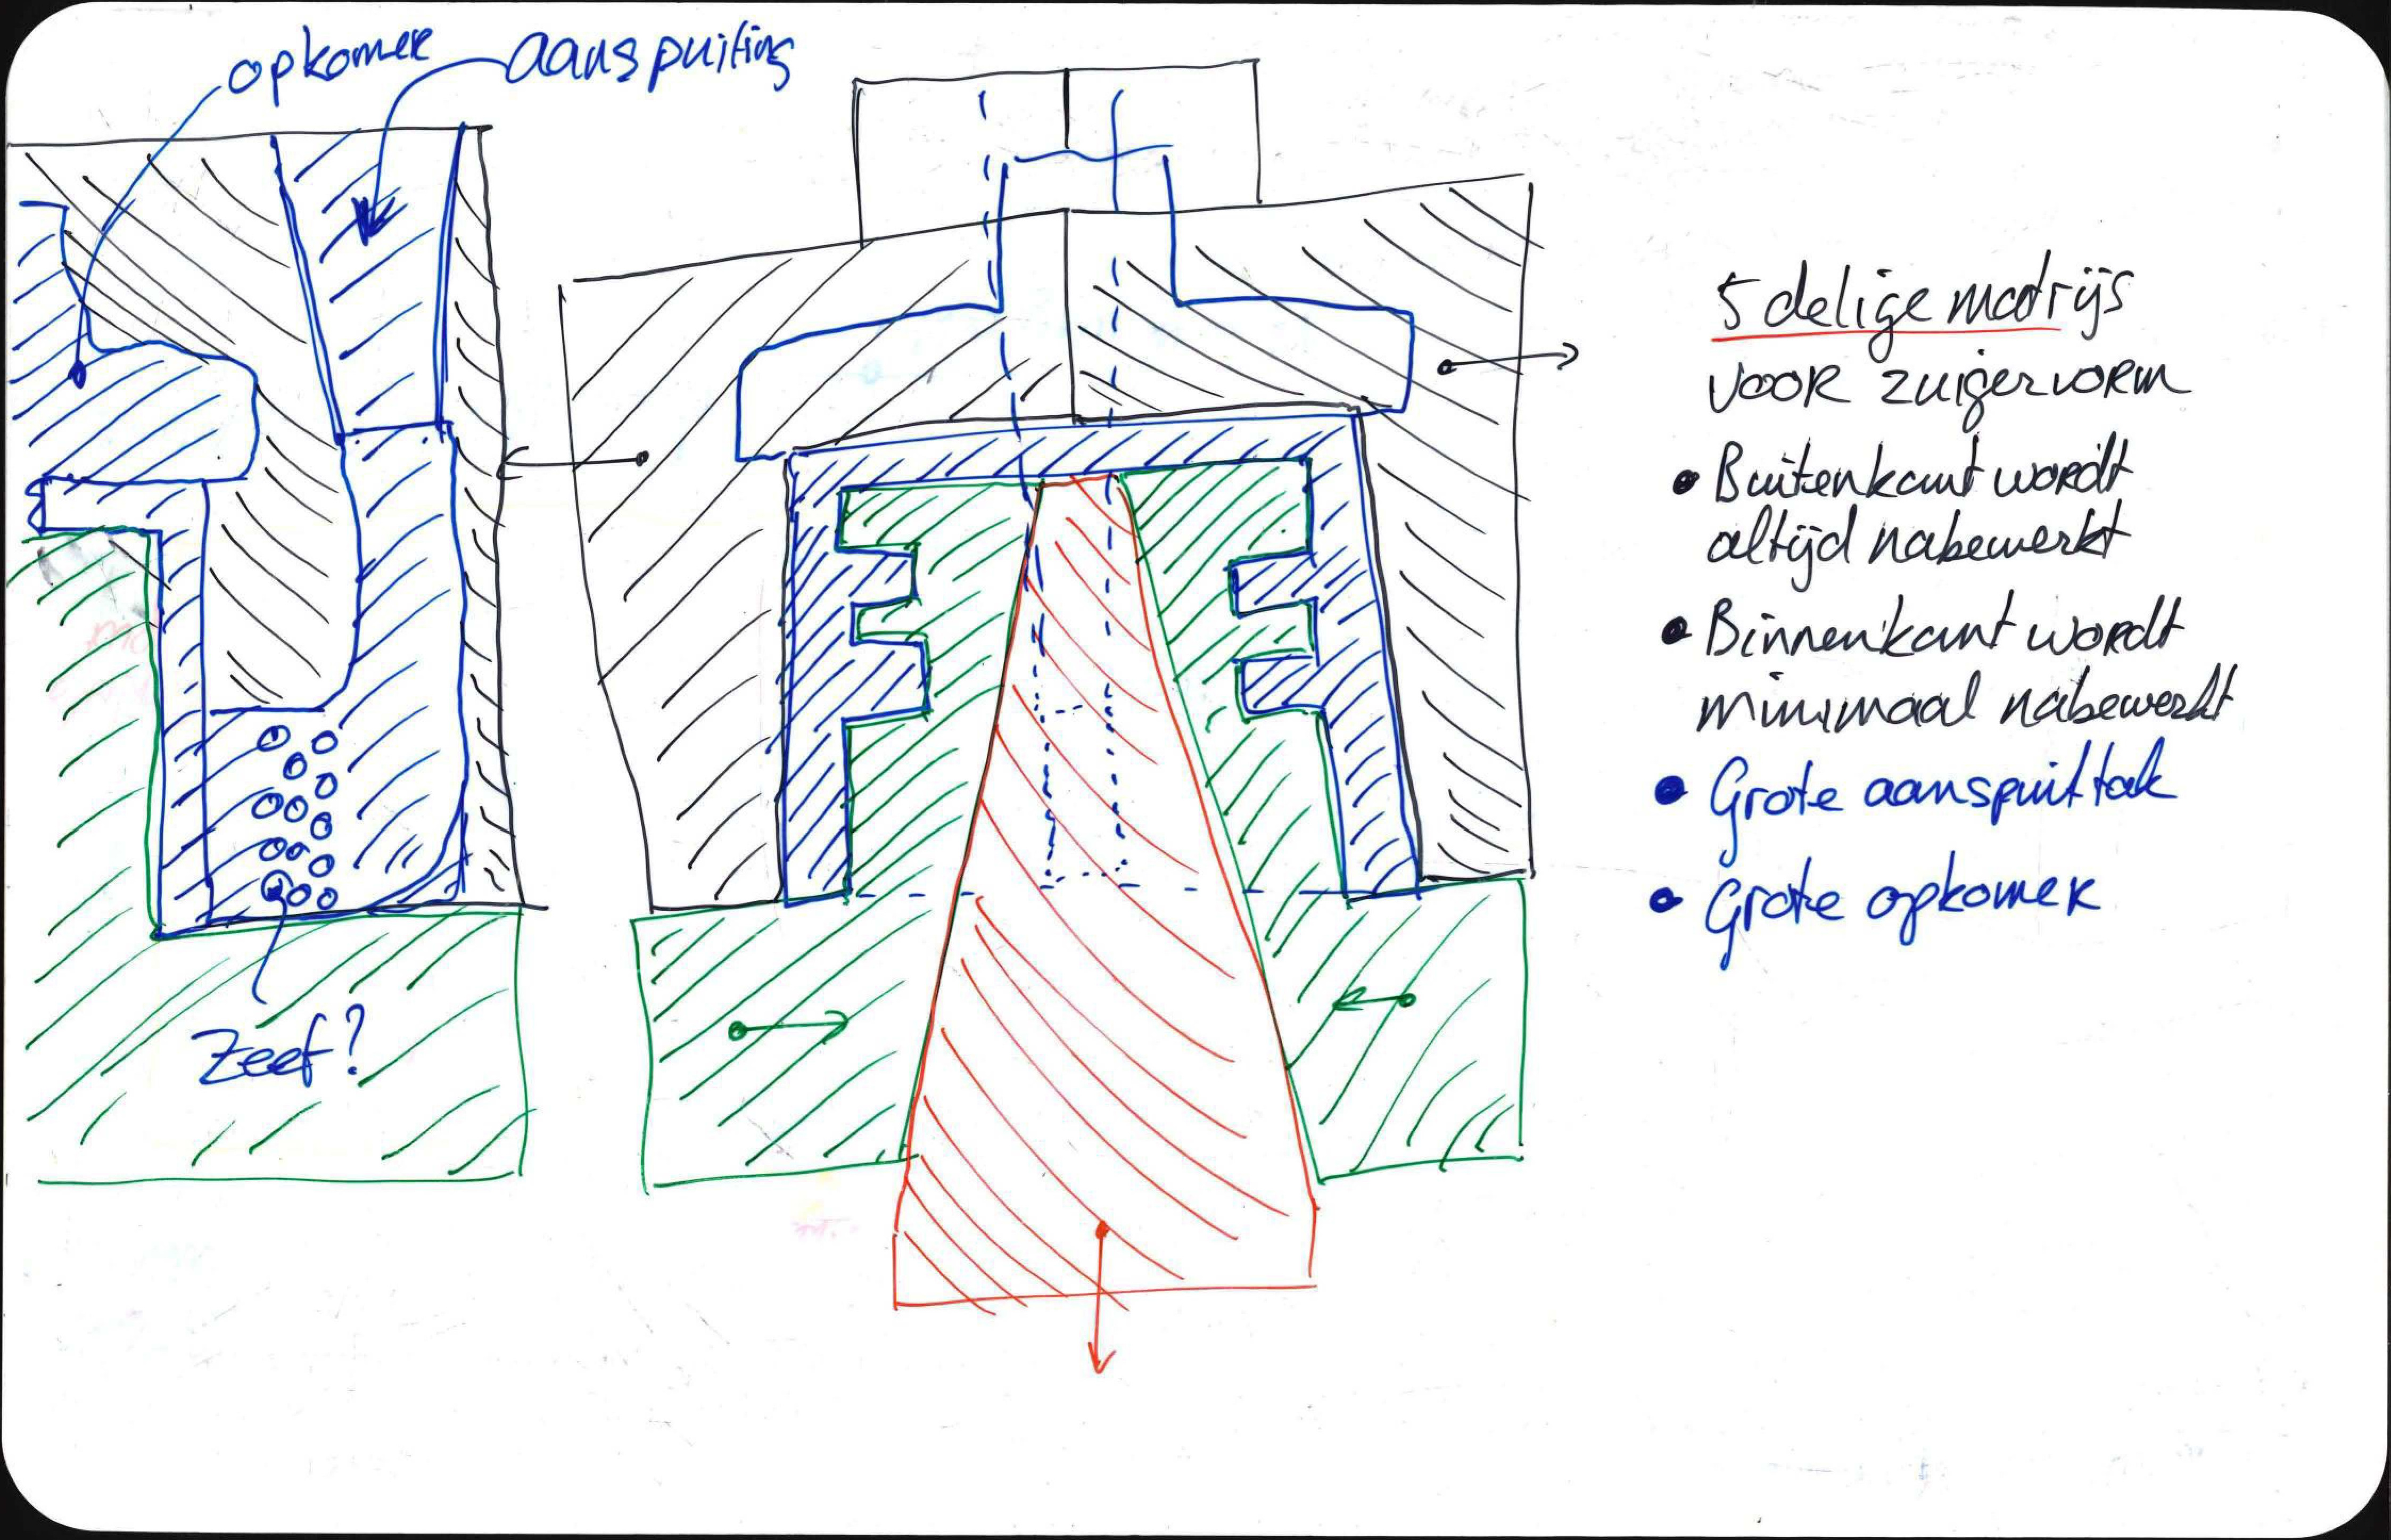 opkomer
aanspuiting
5 delige matrijs
voor zuigervorm
• Buitenkant wordt
altijd nabewerkt
• Binnenkant wordt
minimaal nabewerkt
• Grote aanspuittak
• Grote opkomer
Zeef?